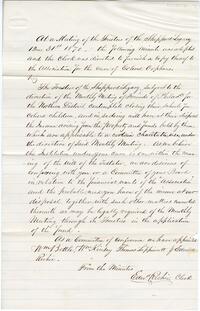 At a Meeting of the Trustees of the Sheppard Legacy
31st 1870 - the following Minute was adopted
and the Clerk was directed to furnish a copy thereof to
the Association for the care of Colored Orphans.
The Trustees of the Sheppard Legacy, subject to the
direction of the Monthly Meeting of Friends of Philada for the
Northern District contemplate closing their school for
Colored children, and in so doing will have at their disposal
the Income arising from the Property and funds held by them
which are applicable to a certain charitable use, under
the direction of said Monthly Meeting. As we believe
the Institution under your care is one within the mean-
ing of the Will of the Testator, we are desirous of
conferring with you or a Committee of your Board
in relation to the financial wants of the Association
and the probable aid you have of the means at our
disposal, together with such other matters connected
therewith as may be legally required of the Monthly
Meeting through its Trustees in the application
of the fund.
As a Committee of Conference we have appointed
Wm Kinsey, Thomas Lippincott & Edward
Richie.
From the Minutes
Edwd Richie Clerk